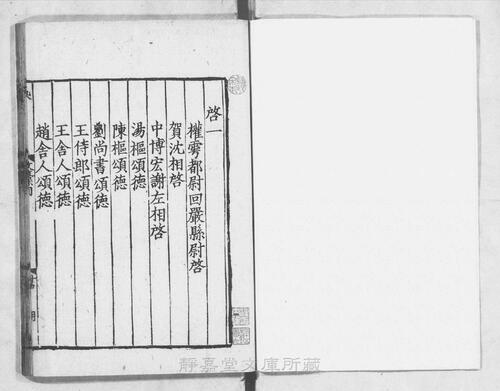 啓一
權雩都尉回嚴縣尉啓
賀沈相啓
中博宏謝左相啓
湯樞頌德
陳樞頌德
劉尚書頌德
王侍郎頌德
王舍人頌德
趙舍人頌德
靜嘉堂文庫所藏